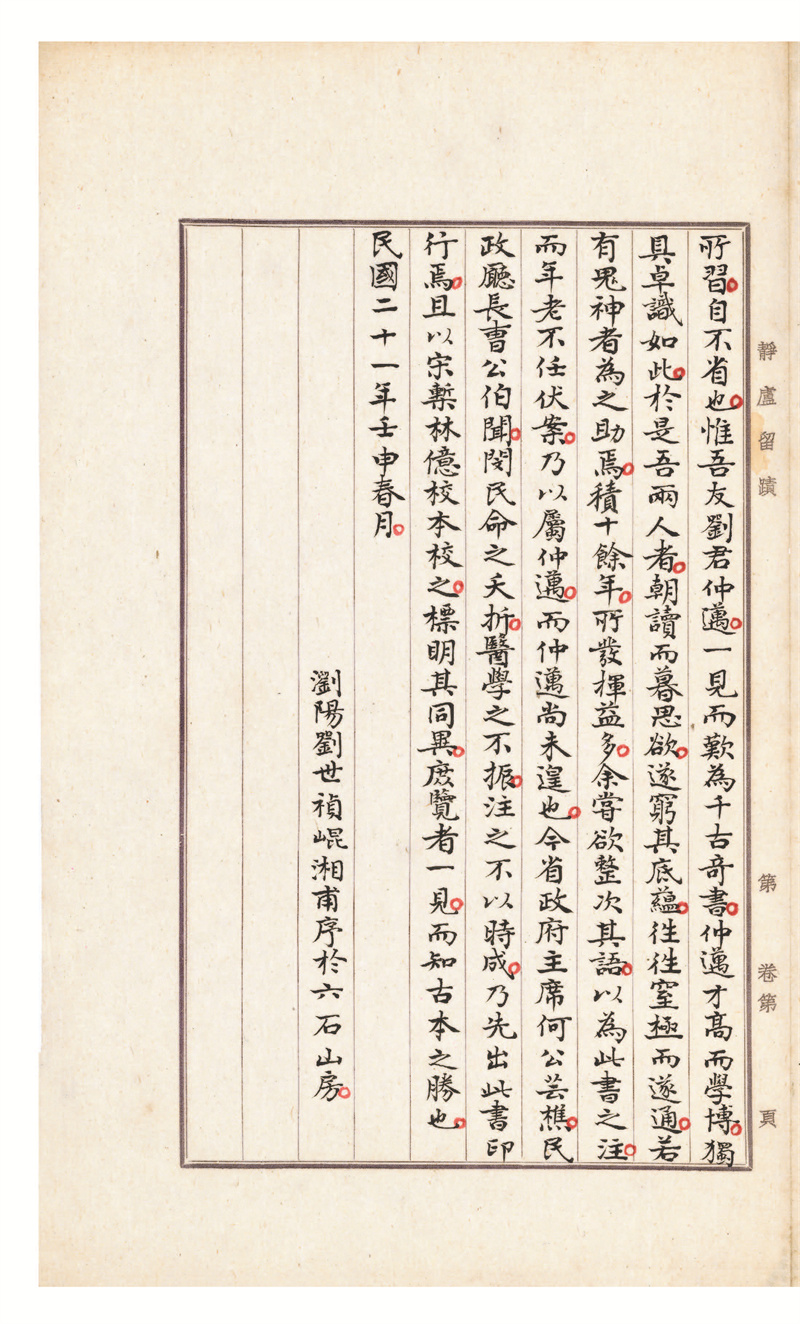 靜廬留蹟 第 卷第 頁
所習自不省也惟吾友劉君仲邁一見而歎為千古奇書仲邁才高而學博獨
具卓識如此於是吾兩人者朝讀而暮思欲遂窮其底蘊往往窒極而遂通若
有鬼神者為之助焉積十餘年所發揮益多余嘗欲整次其語以為此書之注
而年老不任伏案乃以屬仲邁而仲邁尚未遑也今省政府主席何公芸樵民
政廳長曹公伯聞閔民命之夭折醫學之不振注之不以時成乃先出此書印
行焉且以宋槧林億校本校之標明其同異庶覽者一見而知古本之勝也
民國二十一年壬申春月
瀏陽劉世禎崐湘甫序於六石山房